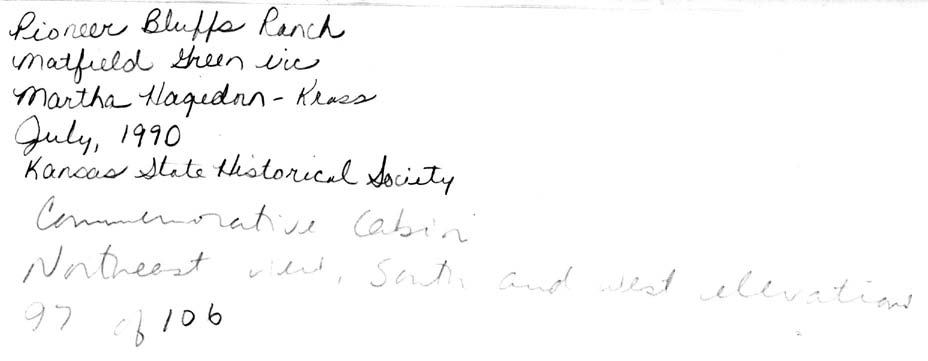 Pioneer Bluffs Ranch
Matfield Green vic
Martha Hagedorn-Krass
July, 1990
Kansas State Historical Society
Commemorative Cabin
Northeast view, South and west elevations
97 of 106